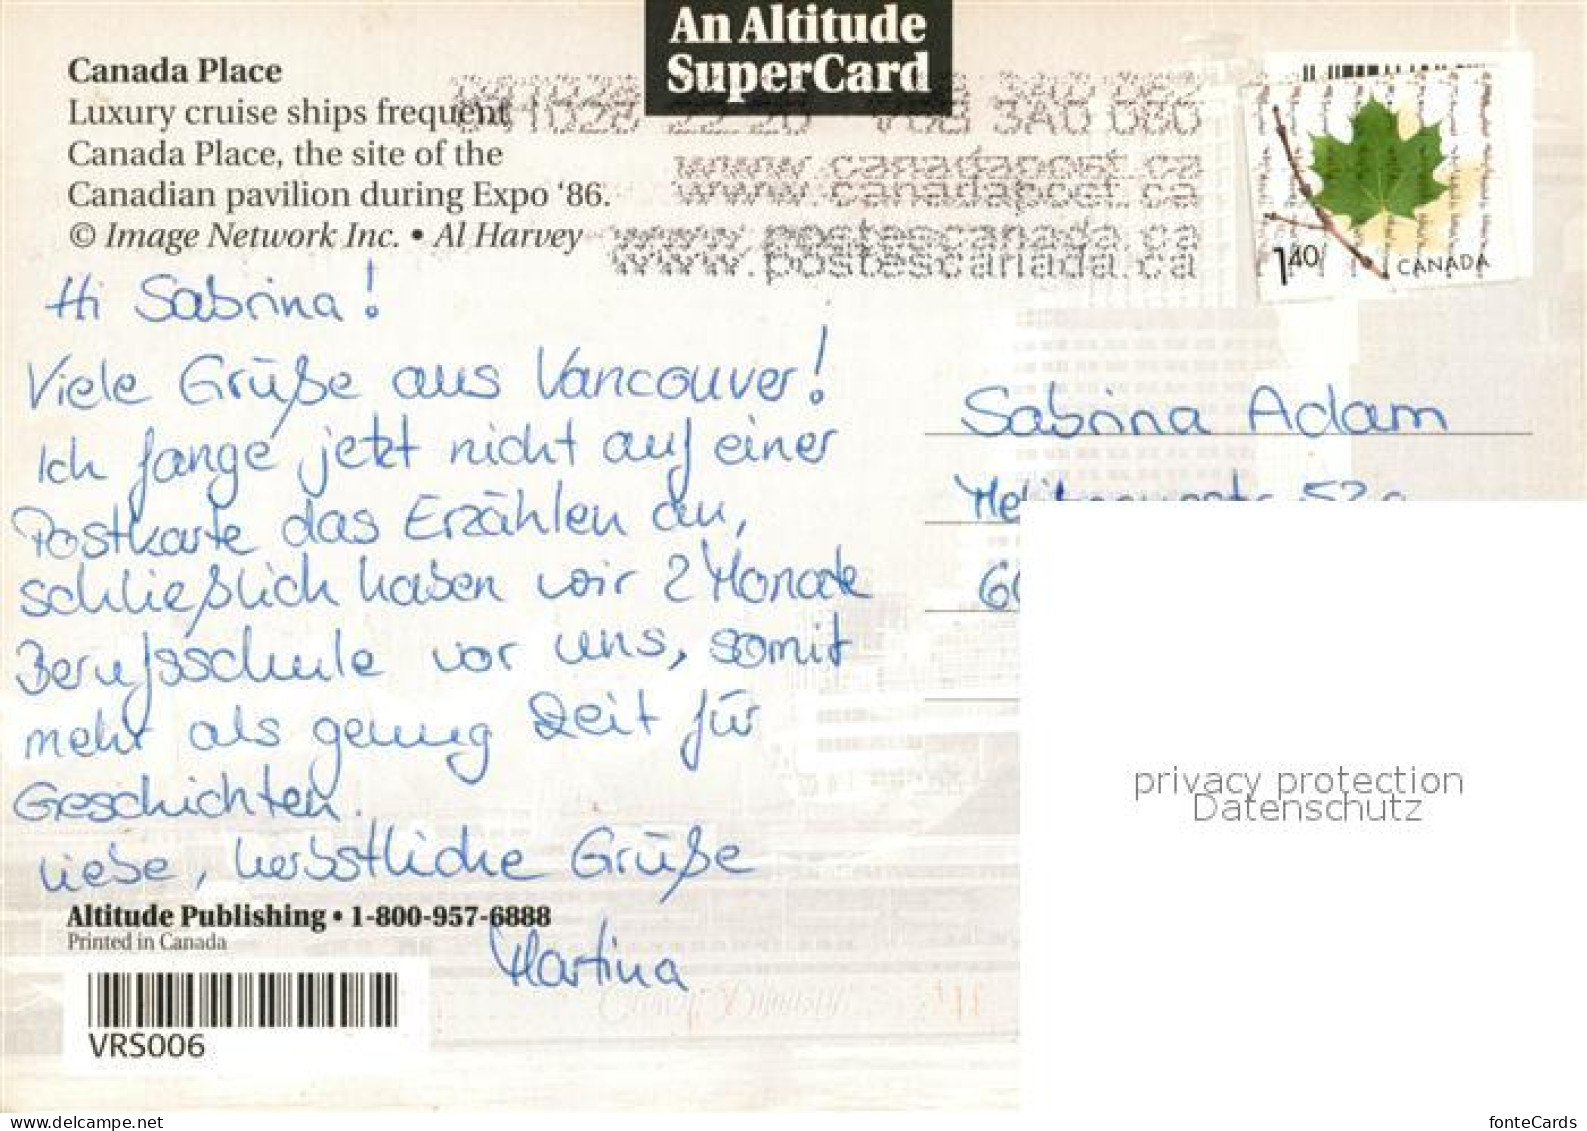 An Altitude
SuperCard
Canada Place
Luxury cruise ships frequent
Canada Place, the site of the
Canadian pavilion during Expo '86.
© Image Network Inc. • Al Harvey
www.canadapost.ca
www.canadapost.ca
www.postescanada.ca
www.postescanada.ca
1.40
CANADA
Hi Sabrina!
Viele Grüße aus Vancouver!
Ich fange jetzt nicht auf einer
Postkarte das Erzählen an,
schließlich haben wir 2 Monate
Berufsschule vor uns, somit
mehr als genug Zeit für
Geschichten.
Liebe, herbstliche Grüße
Martina
Sabrina Adam
Altitude Publishing • 1-800-957-6888
Printed in Canada
VRS006
privacy protection
Datenschutz
delcampe.net
fonteCards